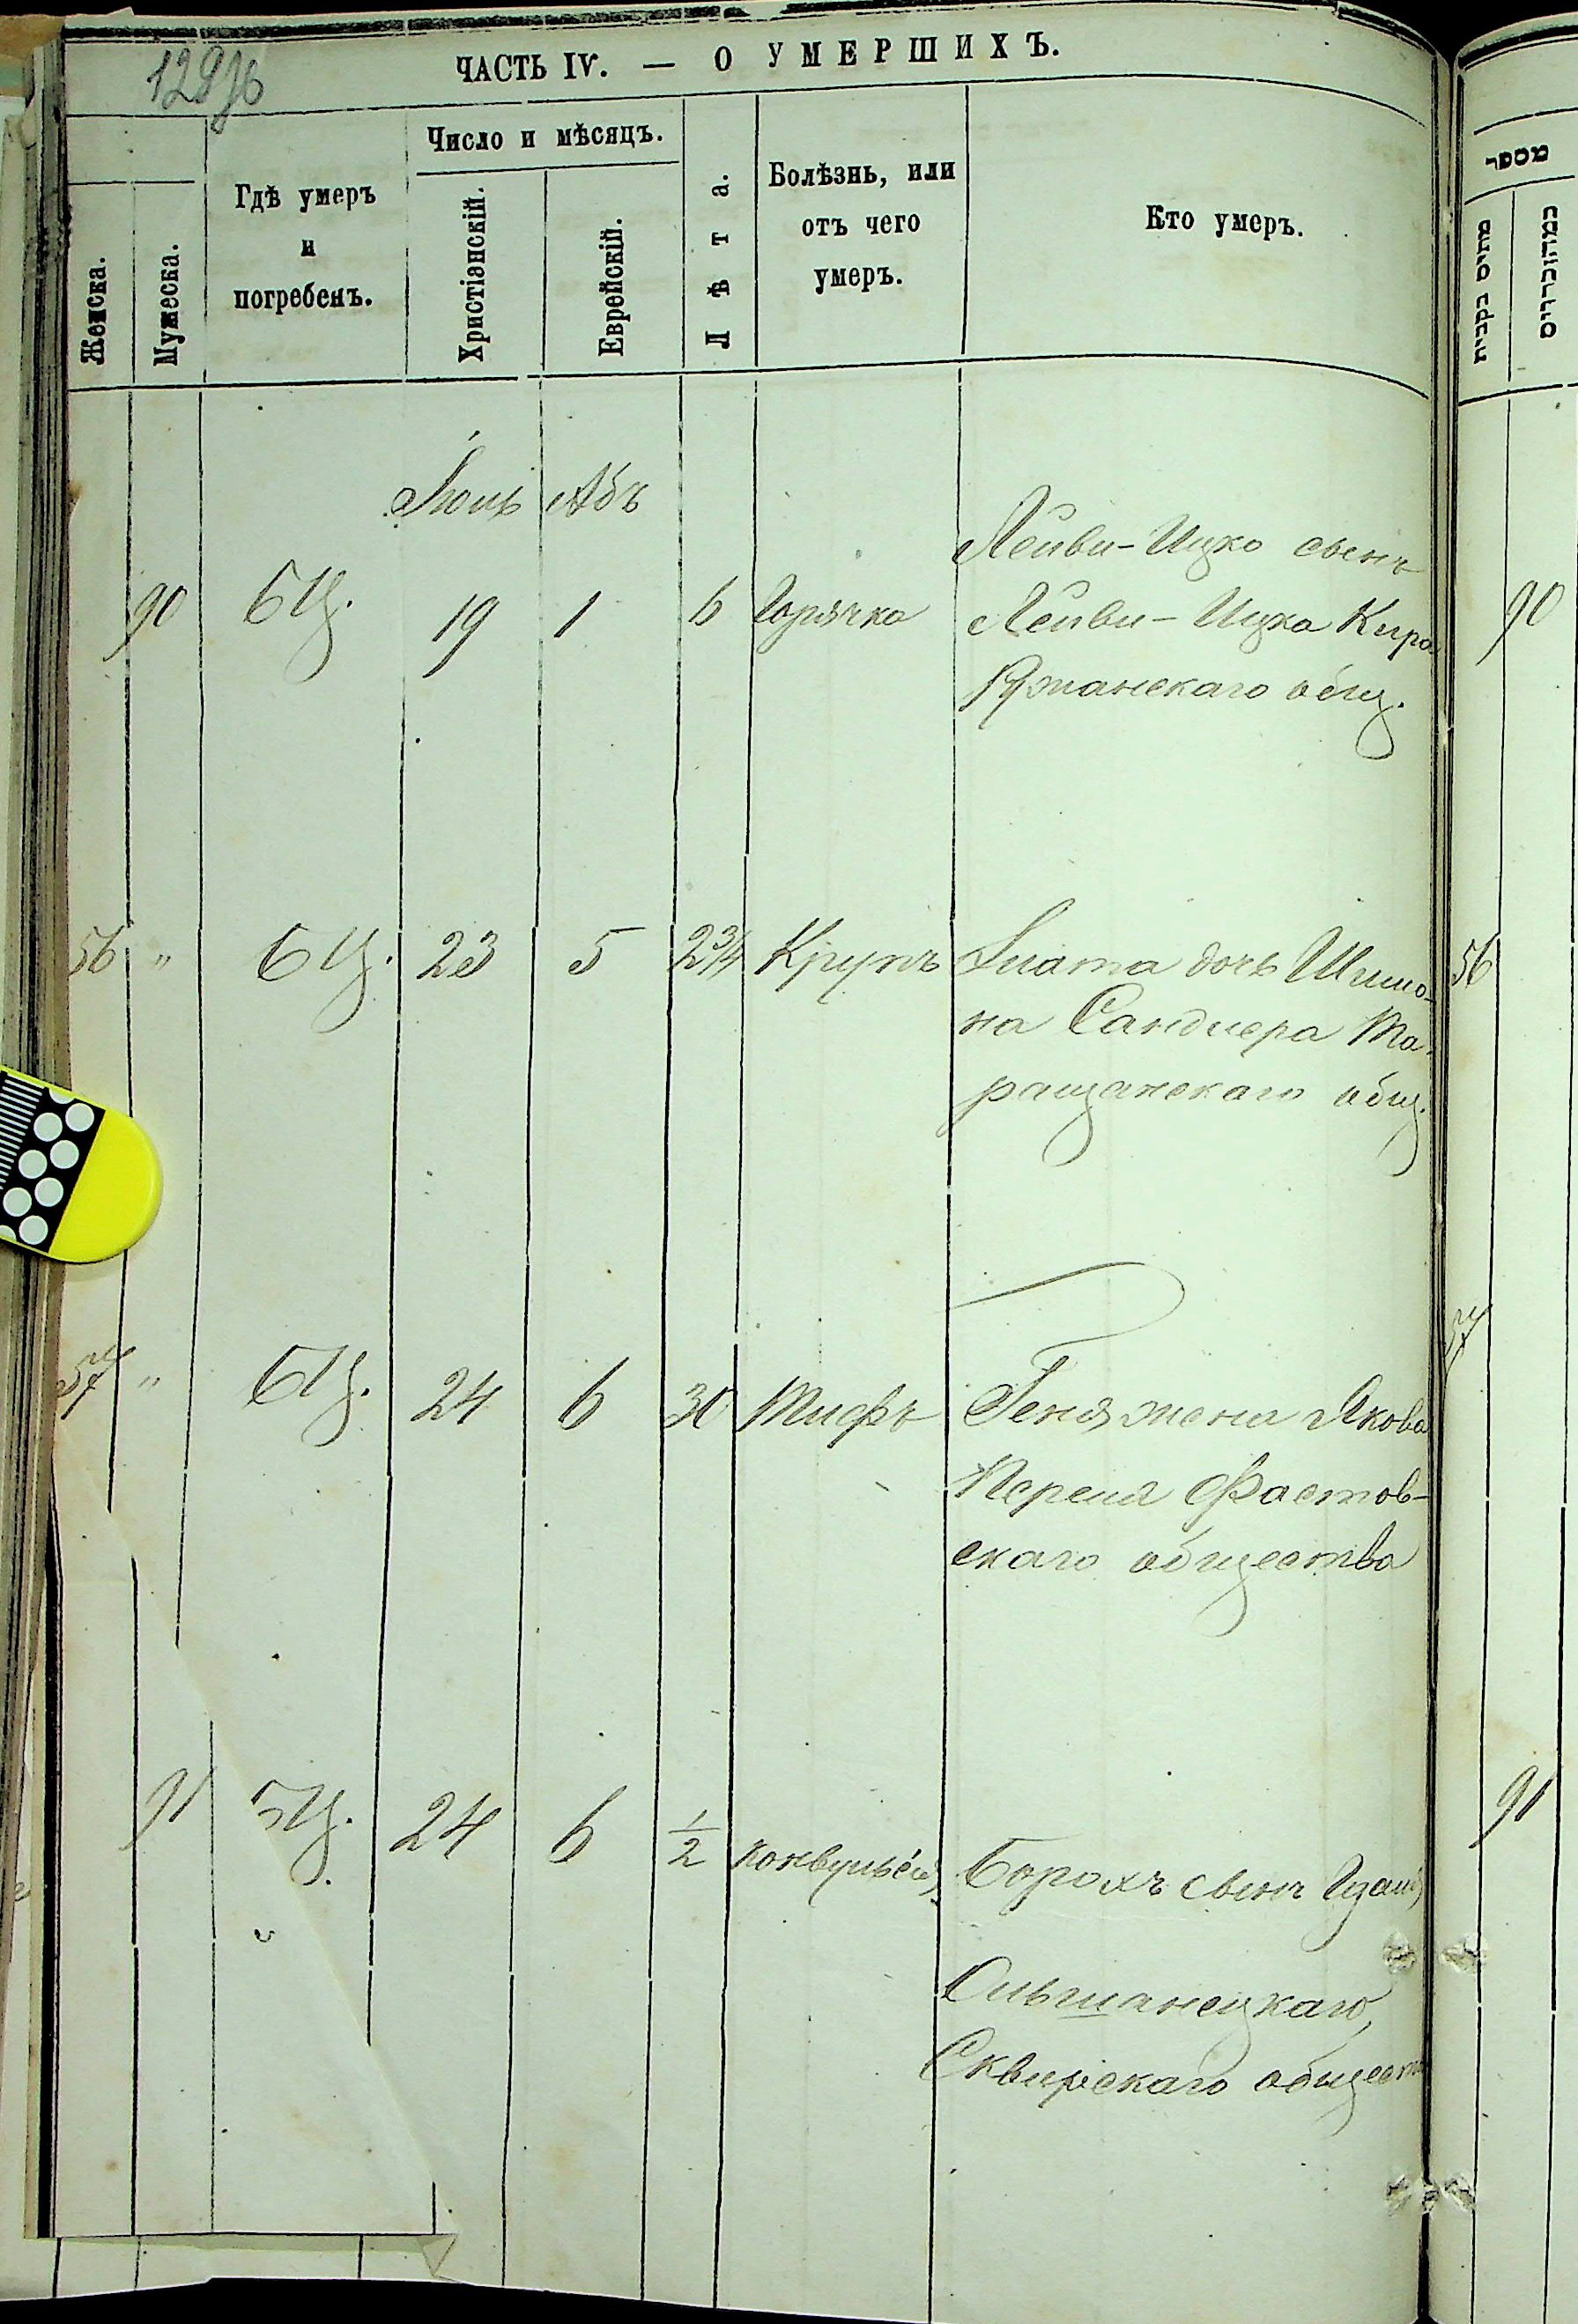 ЧАСТЬ IV. — О УМЕРШИХЪ.
Женска.
Мужеска.
Гдѣ умеръ
и
погребенъ.
Число и мѣсяцъ.
Христіанскій.
Еврейскій.
Лѣта.
Болѣзнь, или
отъ чего
умеръ.
Кто умеръ.
מספר
מתים נקבות
Абъ
90 БЦ. 19 1 6 Горячка
Лейви-Ицко сынъ
Лейви-Ицка Кира
Ржанскаго общ.
90
56 " БЦ. 23 5 2 3/4 Крупъ
Злата дочь Шимо-
на Сандлера Та-
ращанскаго общ.
56
57 " БЦ. 24 6 30 Тифъ
Геня жена Якова
Переля Фастов-
скаго общества
57
91 БЦ. 24 6 1/2
Борохъ сынъ
Ольшанецкаго,
Сквирскаго общест
91